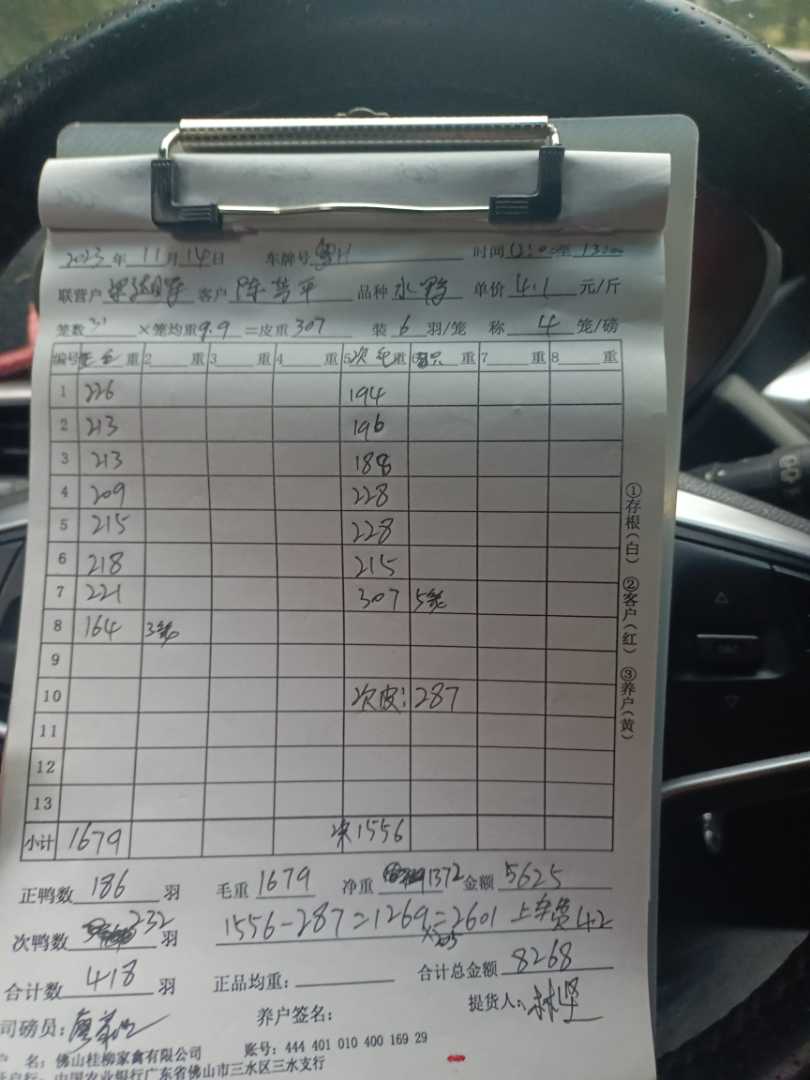 2023年 11月 14日 车牌号 粤H 时间 12:00至 13:00
联营户 客户 陈 平 品种 水鸭 单价 4.1 元/斤
笼数 31 ×笼均重 9.9 =皮重 307 装 6 羽/笼 称 4 笼/磅
编号 正毛 重 2 重 3 重 4 重 5次毛重 6 只 重 7 重 8 重
1 226 194
2 213 196
3 213 188
4 209 228
5 215 228
6 218 215
7 221 307 5笼
8 164 3笼
9
10 次皮:287
11
12
13
小计 1679 次1556
①存根(白) ②客户(红) ③养户(黄)
正鸭数 186 羽 毛重 1679 净重 1372 金额 5625
次鸭数 232 羽 1556-287=1269 ×205 =2601 上车费 42
合计数 418 羽 正品均重: 合计总金额 8268
司磅员: 养户签名: 提货人: 林坚
户 名: 佛山桂柳家禽有限公司 账号: 444 401 010 400 169 29
开户行: 中国农业银行广东省佛山市三水区三水支行